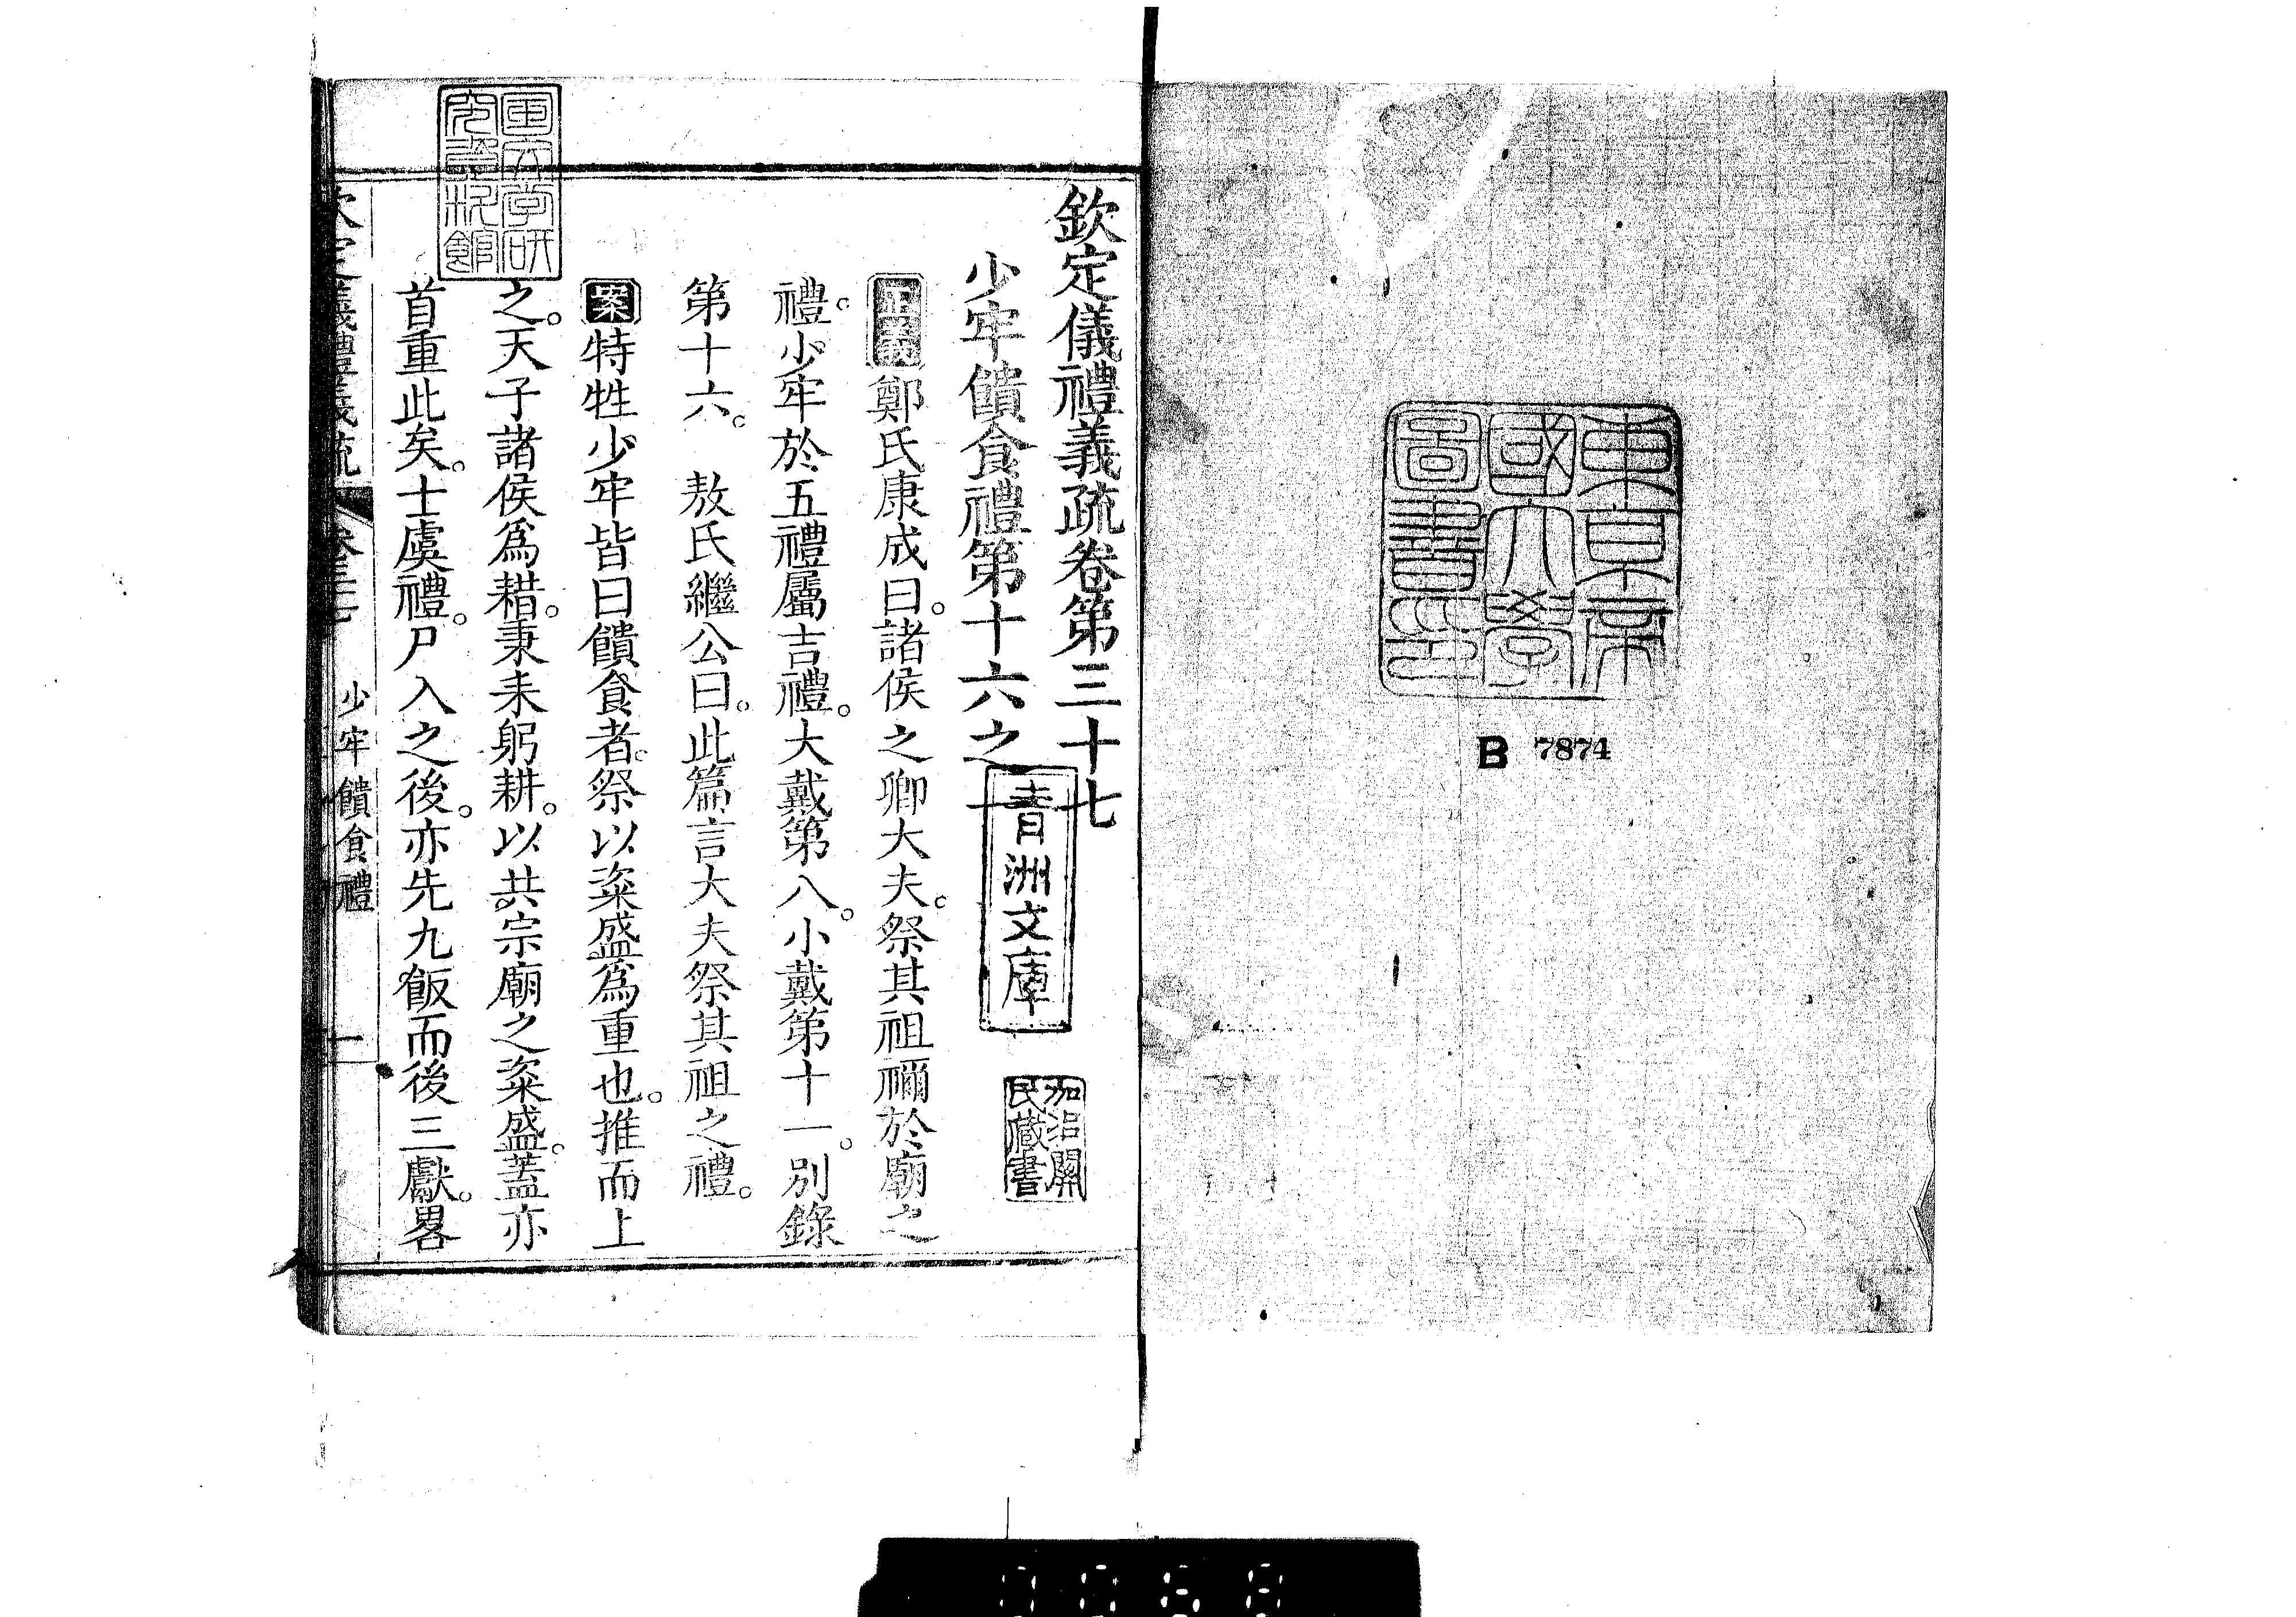 東京帝
國大學
圖書印
B 7874
欽定儀禮義疏卷第三十七
少牢饋食禮第十六之一
青洲文庫
加沼關
民藏書
正義鄭氏康成曰。諸侯之卿大夫。祭其祖禰於廟之
禮。少牢於五禮屬吉禮。大戴第八。小戴第十一。別錄
第十六。 敖氏繼公曰。此篇言大夫祭其祖之禮。
案特牲少牢皆曰饋食者。祭以粢盛爲重也。推而上
之。天子諸侯爲耤。秉耒躬耕。以共宗廟之粢盛。蓋亦
首重此矣。士虞禮。尸入之後。亦先九飯而後三獻。畧
國文学研
究資料館
欽定儀禮義疏 卷三十七 少牢饋食禮 一